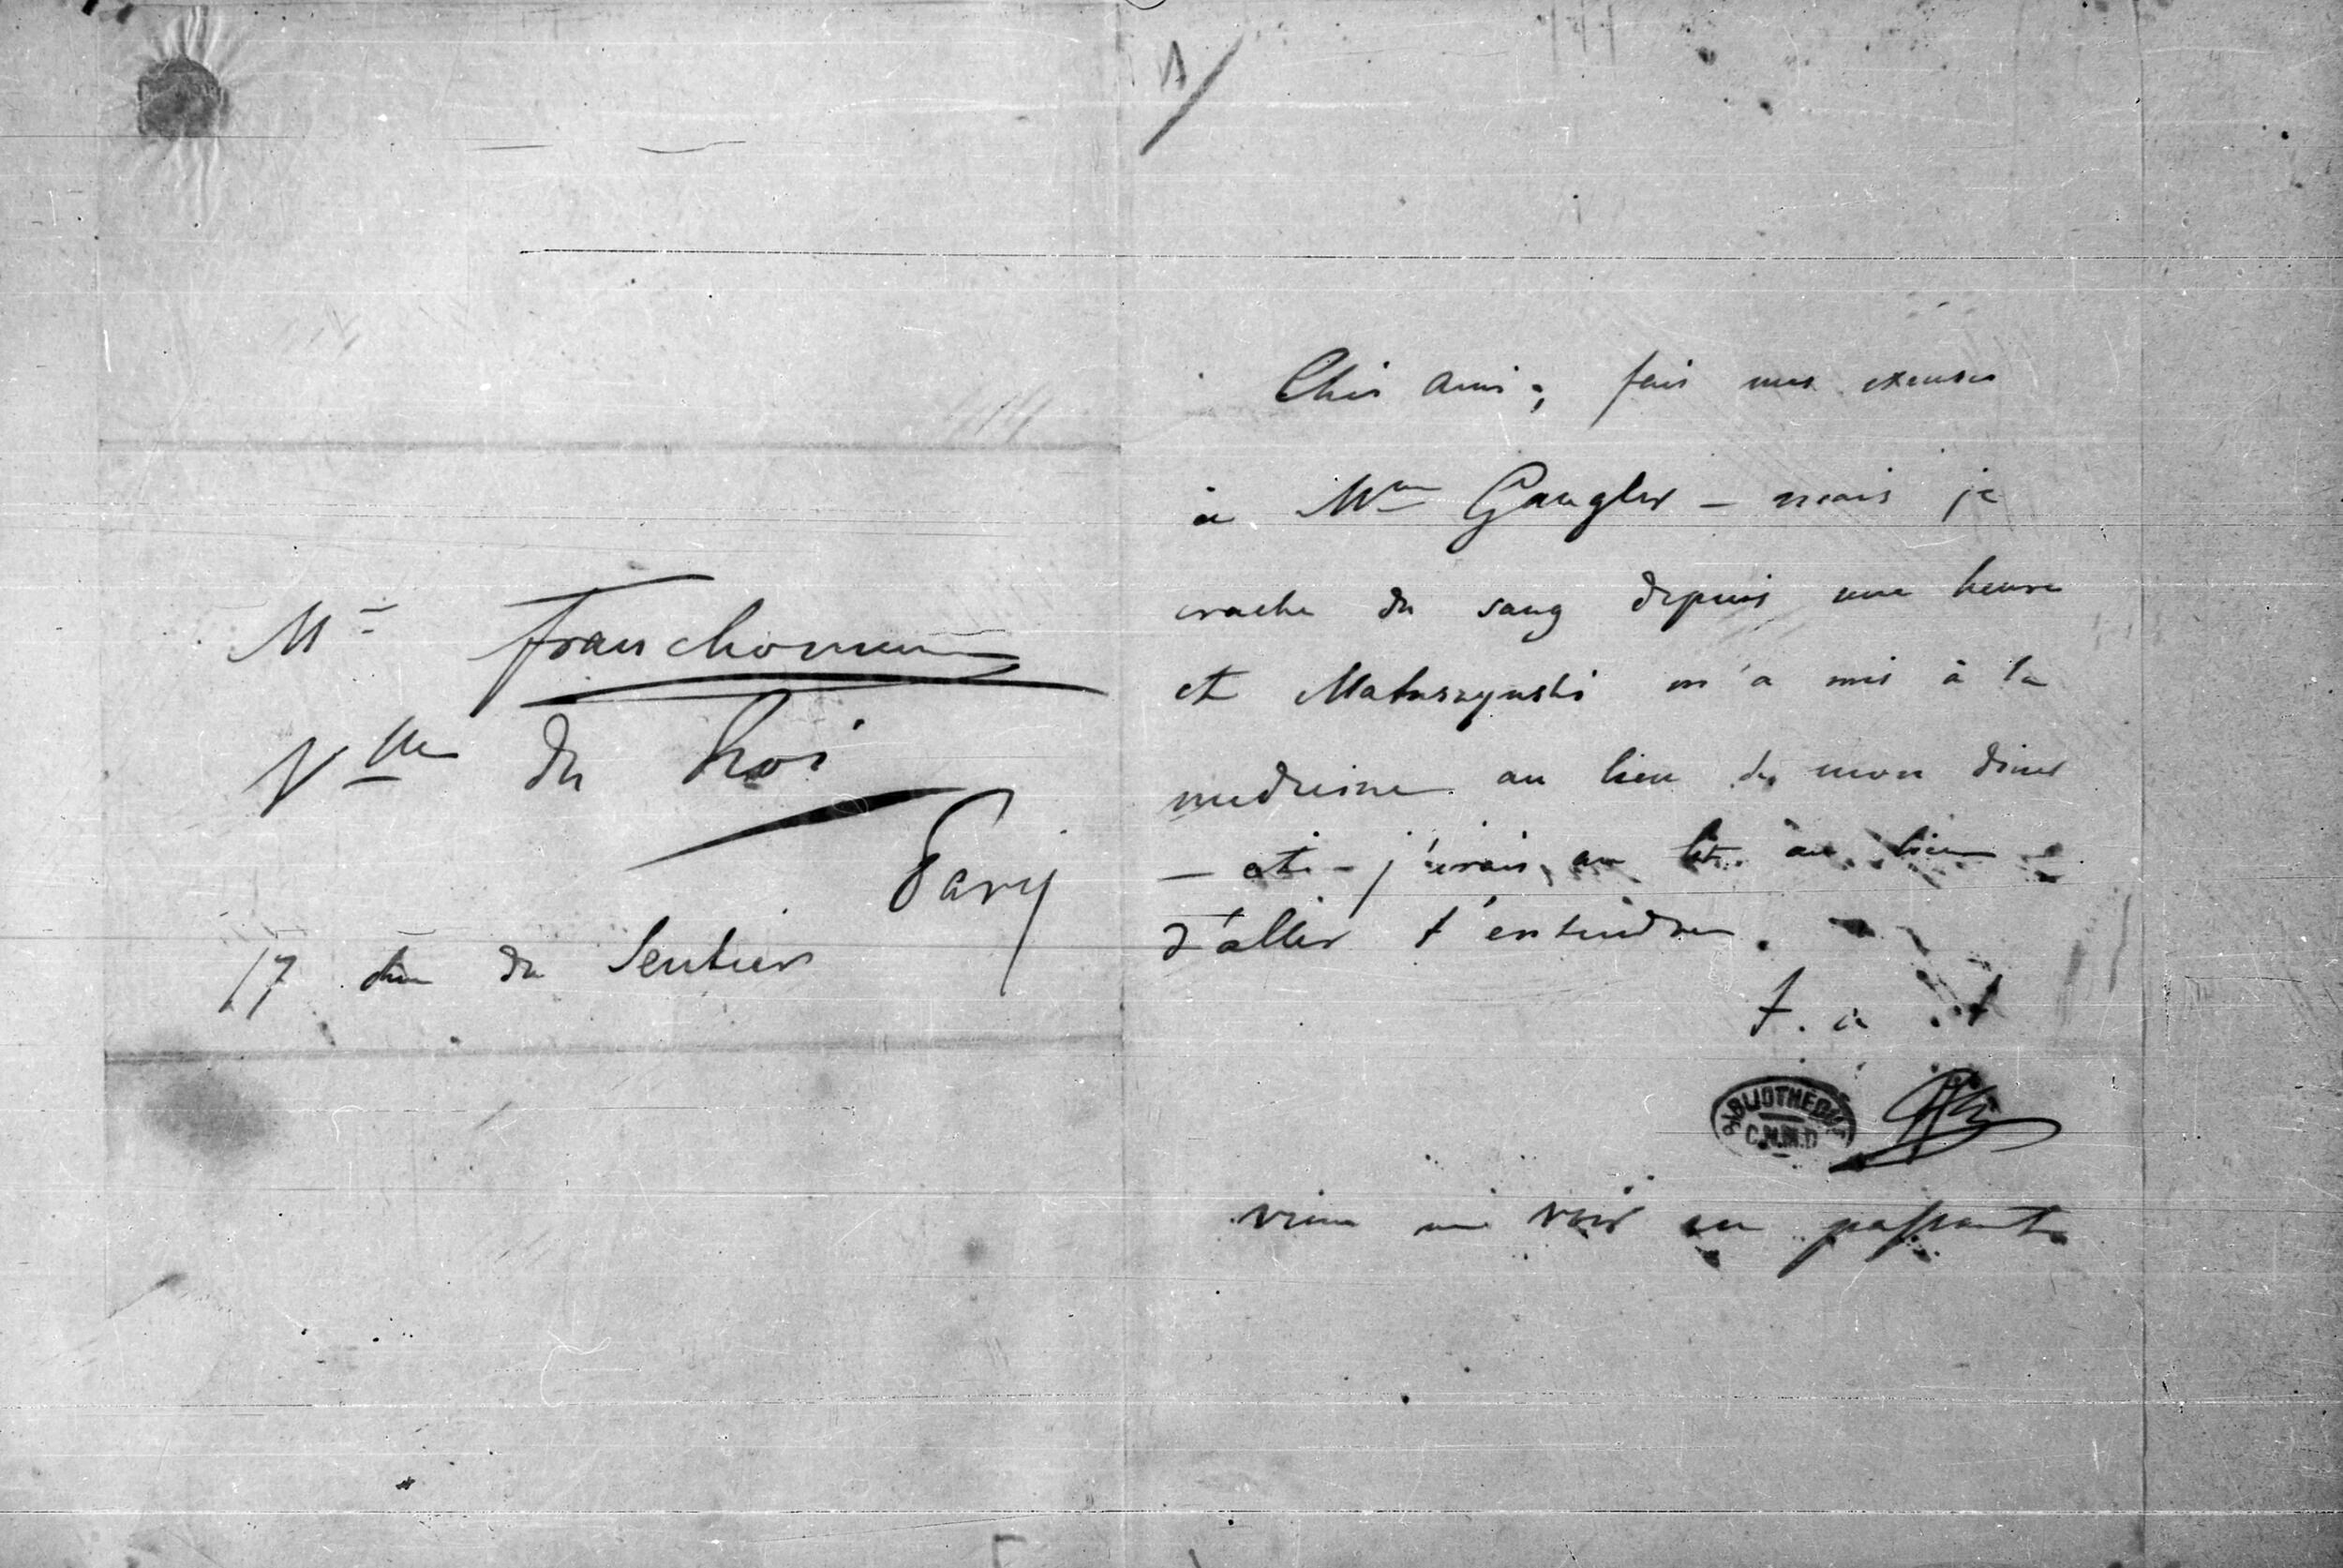 Mr Franchomme
Vlle du Roi
Paris
17 rue du Sentier
Cher ami; fais mes excuses
à Mme Gaugler – mais je
crache du sang depuis une heure
et Matuszynski m'a mis à la
medecine au lieu de mon diner
– et – j'irais au lit au lieu
d'aller t'entendre.
t. à . t
BIBLIOTHEQUE
C.N.M.D
viens me voir en passant